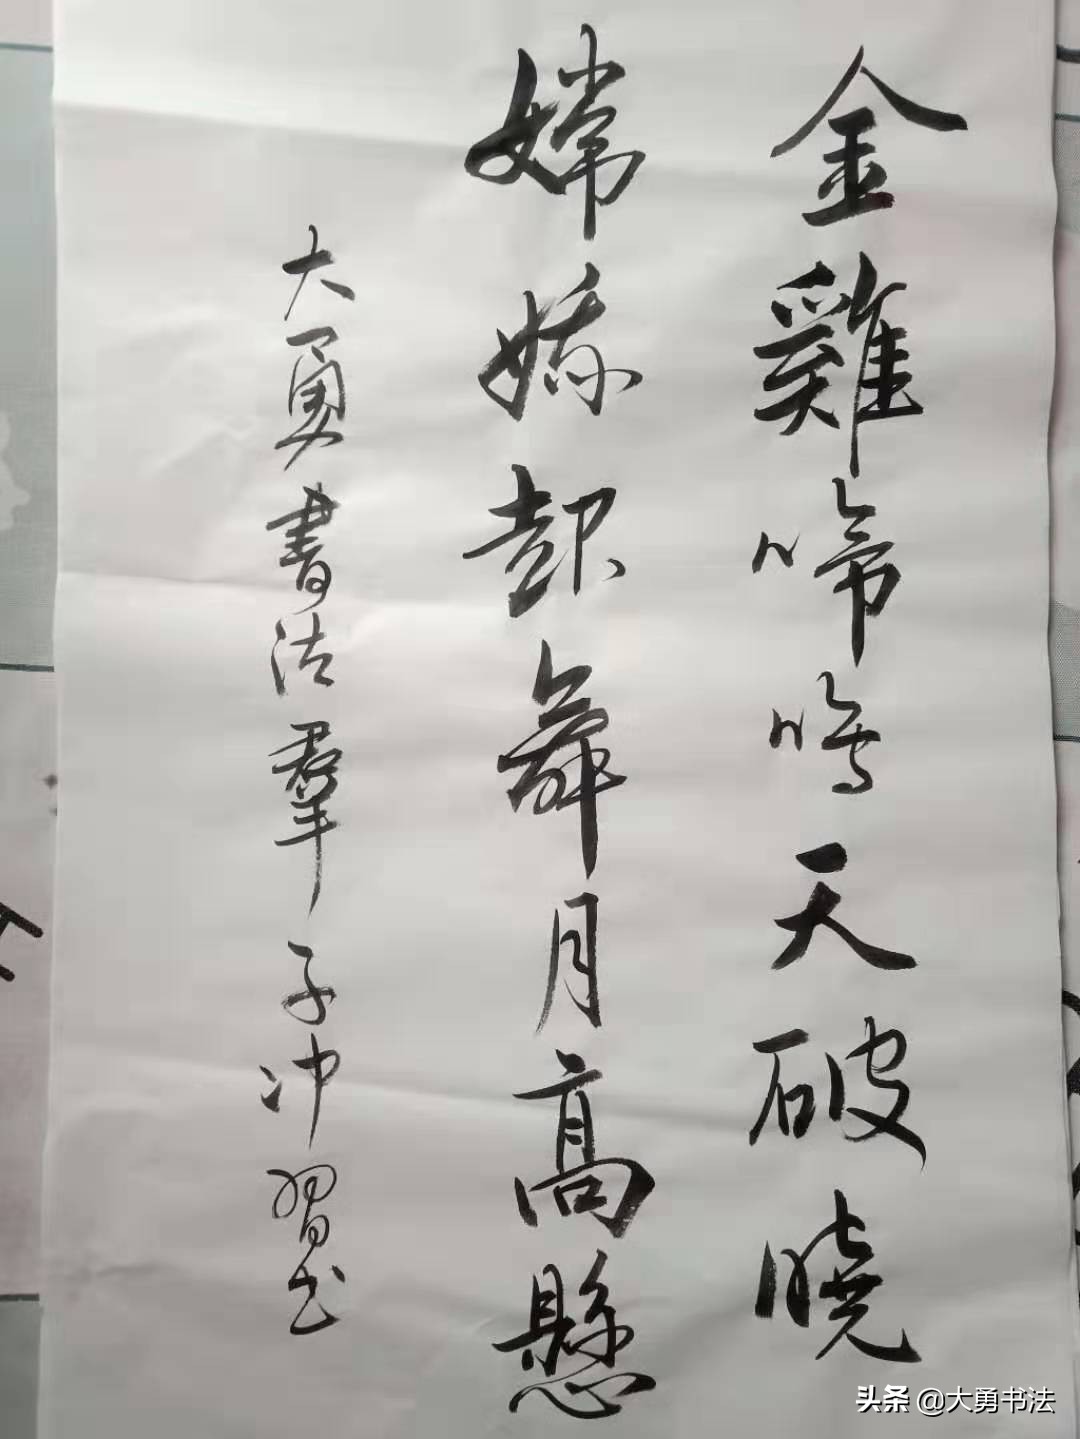 金雞啼鳴天破晓
嫦娥起舞月高懸
大勇書法羣子冲習书
头条 @大勇书法